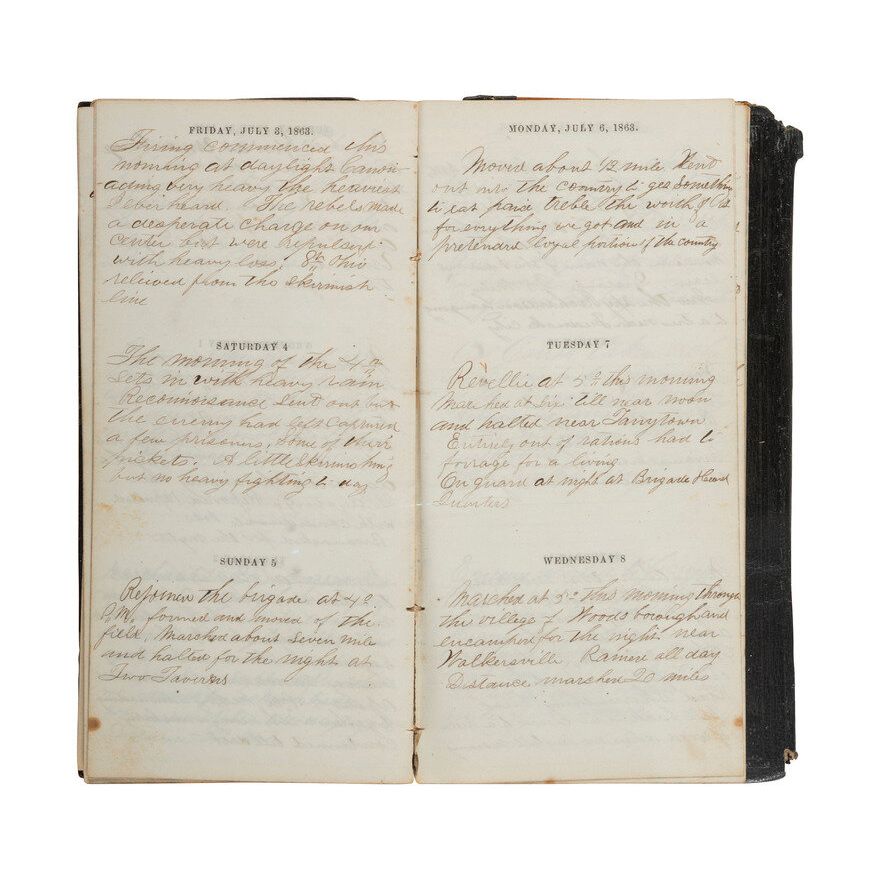 FRIDAY, JULY 3, 1863.
Firing commenced this
morning at daylight Canon-
ading very heavy the heaviest
I ever heard. The rebels made
a desperate charge on our
center but were repulsed
with heavy loss. 8th Ohio
releived from the Skirmish
line
SATURDAY 4
The morning of the 4th
sets in with heavy rain
Reconnoisance sent out but
the enemy had left Captured
a few prisoners, some of their
pickets. A little Skirmishing
but no heavy fighting to day
SUNDAY 5
Rejoined the brigade at 4o
P.M. formed and moved of the
field. Marched about Seven mile
and halted for the night at
Two Taverns
MONDAY, JULY 6, 1863.
Moved about 1/2 mile Went
out into the country to get Something
to eat paid treble the worth
for everything we got and in a
pretended loyal portion of the country
TUESDAY 7
Revellie at 5o this morning
Marched at six till near noon
and halted near Tarrytown
Entirely out of rations had to
forrage for a living
On guard at night at Brigade Head
Quarters
WEDNESDAY 8
Marched at 5o this morning through
the village of Woodsborough and
encamped for the night near
Walkersville. Rained all day
Distance marched 20 miles